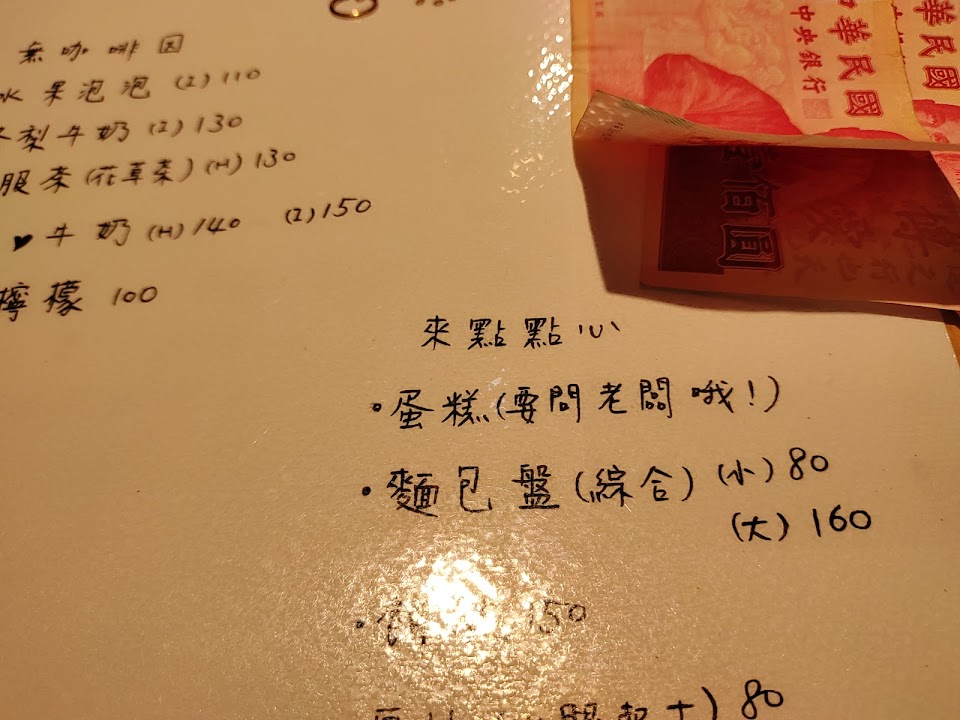 無咖啡因
水果泡泡 (I) 110
梨牛奶 (I) 130
服茶(花草茶) (H) 130
♥牛奶 (H) 140 (I) 150
檸檬 100
來點點心
•蛋糕(要問老闆哦!)
•麵包盤(綜合) (小) 80
(大) 160
150
80
華民國
華民國
中央銀行
佰圓